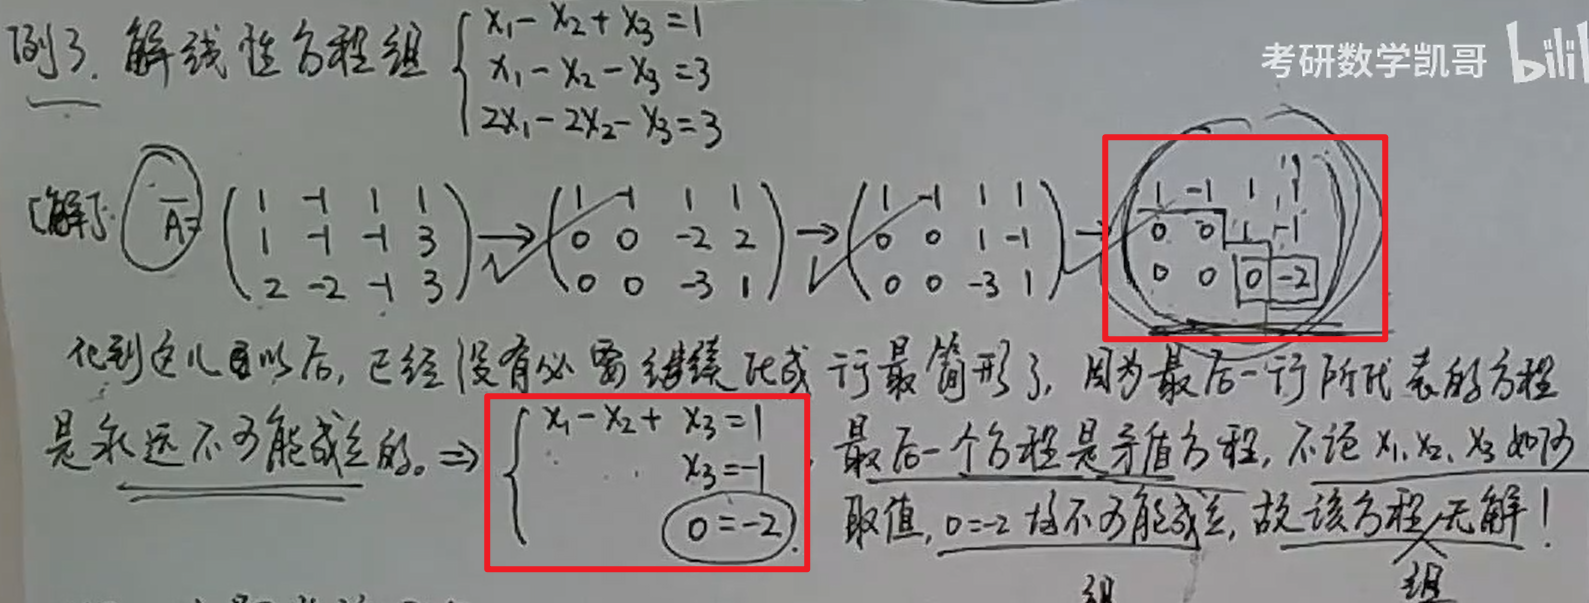 例3. 解线性方程组 { x₁-x₂+x₃=1
x₁-x₂-x₃=3
2x₁-2x₂-x₃=3
考研数学凯哥 bili
[解]: Ā= ( 1 -1 1 1 ) → ( 1 -1 1 1 ) → ( 1 -1 1 1 ) → ( 1 -1 1 1 )
( 1 -1 -1 3 ) ( 0 0 -2 2 ) ( 0 0 1 -1 ) ( 0 0 1 -1 )
( 2 -2 -1 3 ) ( 0 0 -3 1 ) ( 0 0 -3 1 ) ( 0 0 0 -2 )
化到这儿以后, 已经没有必要继续化成行最简形了, 因为最后一行所代表的方程
是永远不可能成立的。⇒ { x₁-x₂+x₃=1 , 最后一个方程是矛盾方程, 不论x₁、x₂、x₃如何
x₃=-1
0=-2. 取值, 0=-2均不可能成立, 故该方程无解!
组 组